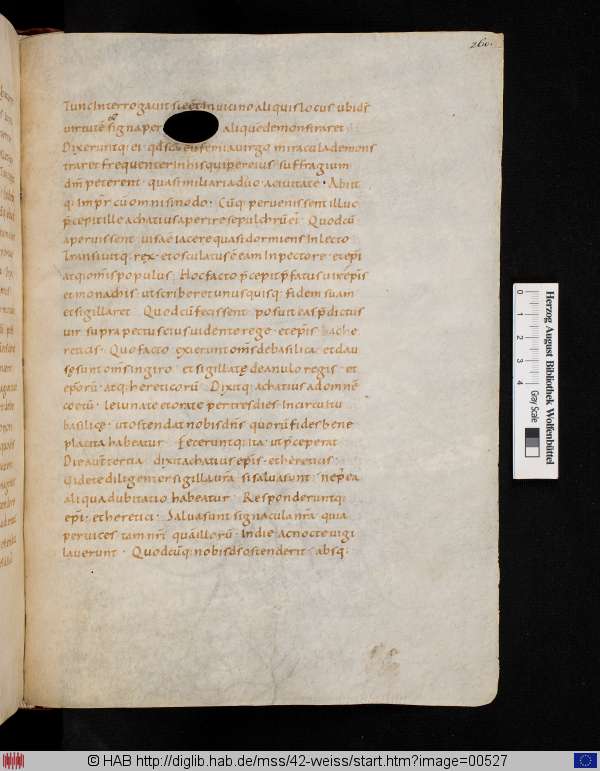 260.
Tunc Interrogauit si eēt In uicino aliquis locus ubi dſ
uirtutē signa per aliqua demonstraret
Dixeruntq; ei qđ scae eufemia uirgo miracula demons
traret frequenter In his qui per eius suffragium
dm̄ peterent quasi miliaria duo a ciuitate · Abiit
q; Impr̄ cū omnis modo · Cūq; peruenissent illuc
p̄cepit ille achatius aperire sepulchrū ei · Quod cū
aperuissent uisa ē iacere quasi dormiens In lecto
Transiuitq; rex · et osculatus ē eam In pectore et ep̄i
atq; om̄is populus · Hoc facto p̄cepit p̄fatus uir ep̄is
et monachis ut scriberet unusquisq; fidem suam
et sigillaret Quod cū fecissent posuit ea sp̄dictus
uir supra pectus eius uidente rege et ep̄is hæ he
reticis · Quo facto exierunt om̄s de basilica et clau
se sunt om̄s In giro et sigillate de anulo regis et
ep̄orū atq; hereticorū Dixitq; achatius ad omnē
coetū · Ieiunate et orate per tres dies In circuitu
basilicę ut ostendat nobis dn̄s quorū fides bene
placita habeatur Feceruntq; ita ut p̄ceperat
Die aut̄ tertia dixit achatius ep̄is et hereticis
Uidete diligenter sigilla ur̄a si salua sunt ne p̄ ea
aliqua dubitatio habeatur Responderuntq;
ep̄i · et heretici · Salua sunt signacula nr̄a quia
per uices tam nr̄i quā illorū In die ac nocte uigi
lauerunt · Quodcūq; nobis ds̄ ostenderit absq;
0 1 2 3 4
Gray Scale
Herzog August Bibliothek Wolfenbüttel
© HAB http://diglib.hab.de/mss/42-weiss/start.htm?image=00527